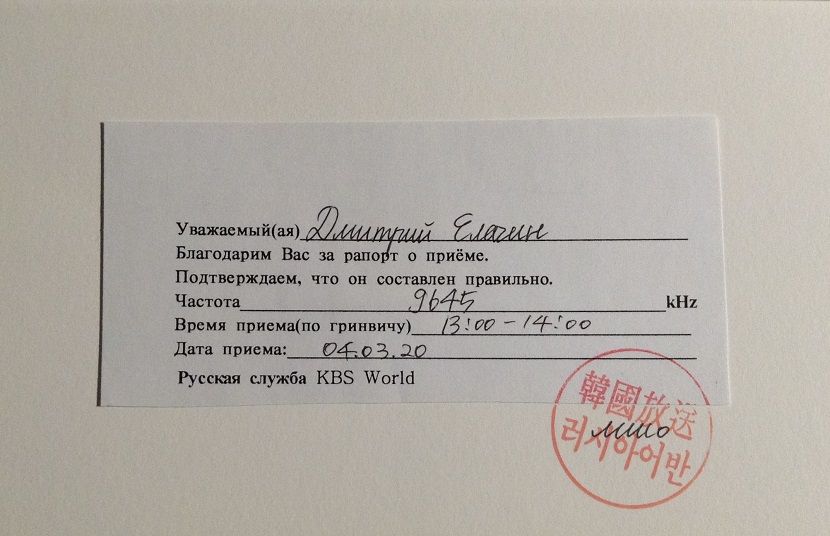 Уважаемый(ая) Дмитрий Елагин
Благодарим Вас за рапорт о приёме.
Подтверждаем, что он составлен правильно.
Частота 9645 kHz
Время приема(по гринвичу) 13:00-14:00
Дата приема: 04.03.20
Русская служба KBS World
韓國放送
러시아어반